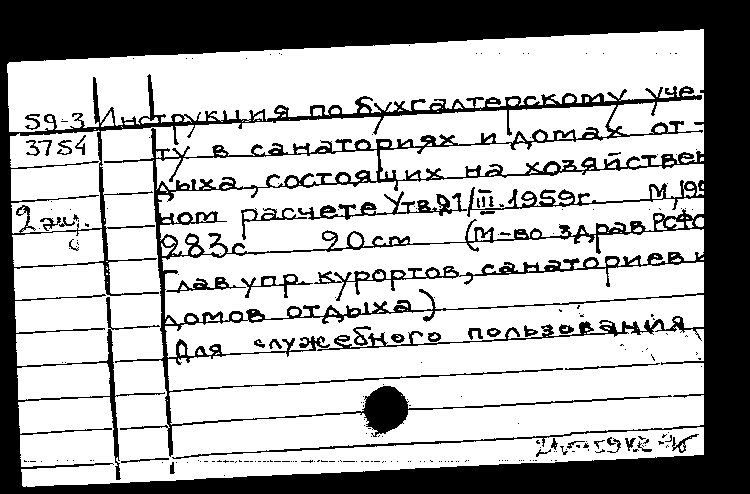 59-3 Инструкция по бухгалтерскому уче-
3754 ту в санаториях и домах от-
дыха, состоящих на хозяйствен
2 экз. ном расчете Утв.21/III.1959г. М,195
283с 20см (М-во здрав РСФС
Глав.упр. курортов, санаториев и
домов отдыха)
Для служебного пользования